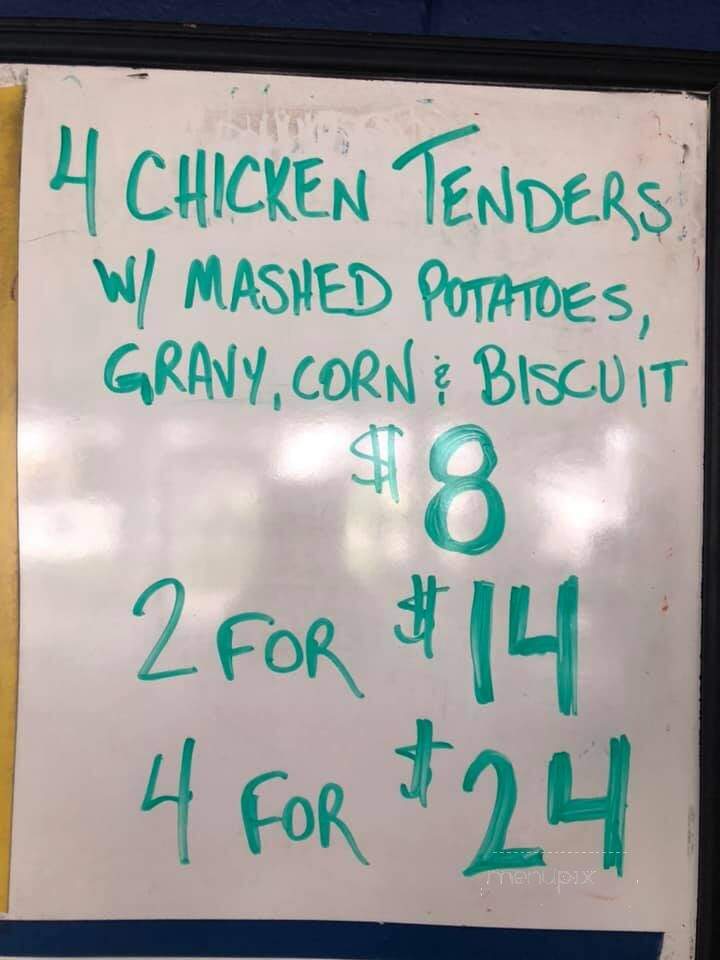 4 CHICKEN TENDERS
W/ MASHED POTATOES,
GRAVY, CORN & BISCUIT
$8
2 FOR $14
4 FOR $24
menupix